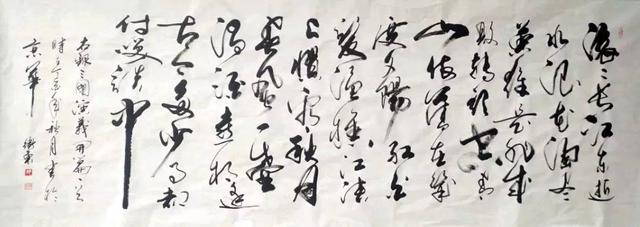 滚々长江东逝
水浪花淘尽
英雄是非成
败转头空青
山依旧在几
度夕阳红白
发渔樵江渚
上惯看秋月
春风一壶
浊酒喜相逢
古今多少事都
付笑谈中
右录三国演义开篇
年秋月书于
京华